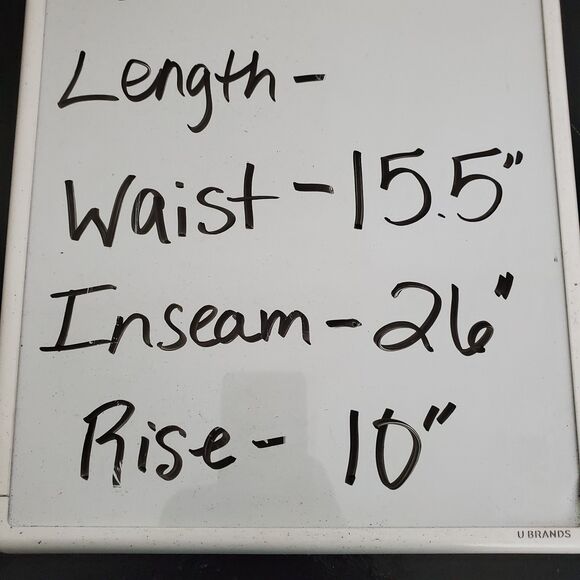 Length -
Waist - 15.5"
Inseam - 26"
Rise - 10"
U BRANDS